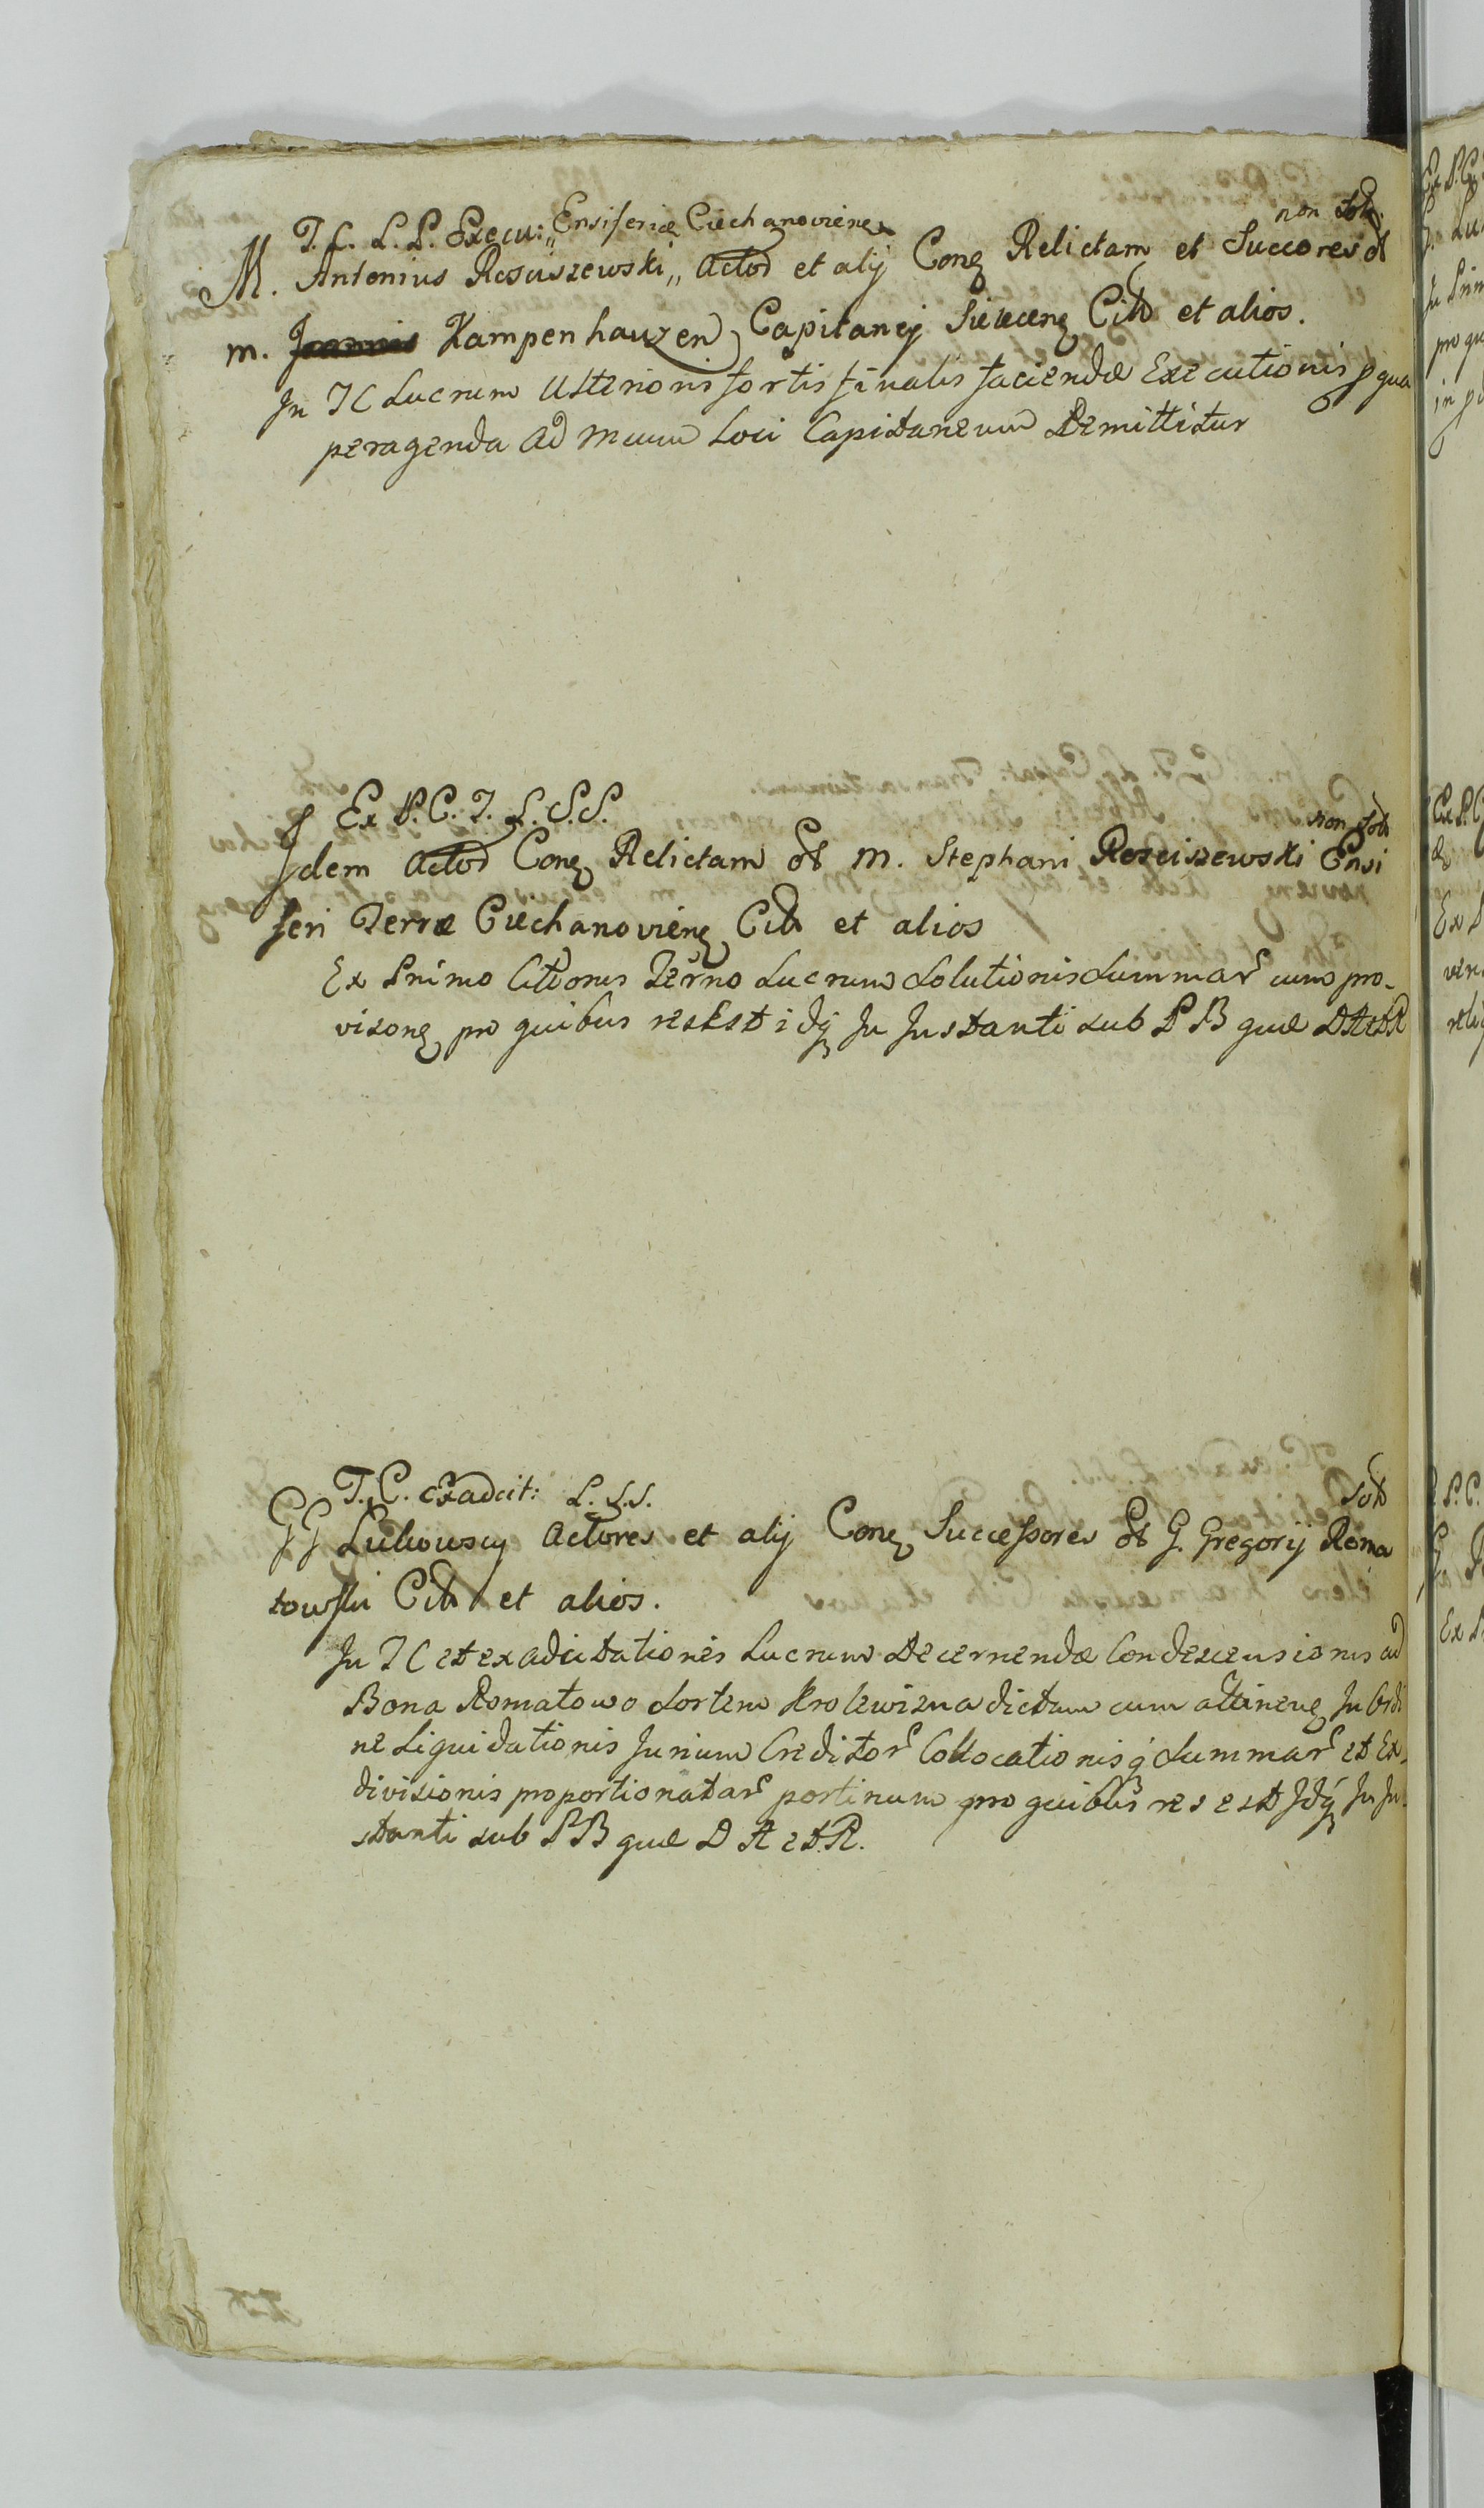 T. C. L. P. Execu: „Ensiferidæ Ciechanovienę
non Solt
M. Antonius Rosciszewski „ Actor et alij Conę Relictam et Succores ol
m. Kampenhauzen Capitanej Siezecenę Citt et alios.
In TC Lucrum Ulterioris fortis finalis faciendæ Executionis p qua
peragenda ad mcum Loci Capitaneum Remittitur
Ex P. C. T. L. S. S.
non Solt
Jdem Actor Conę Relictam ol m. Stephani Rosciszewski Ensi
feri Terræ Ciechanovienę Citt et alios
Ex Primo Citoonis Termo Lucrum Solutionis Summar cum pro-
visonę pro quibus res est idq In Instanti sub P B quæ D A et R
T. C. exadcit: L. S. S.
Solt
GG Lukowscy Actores et alij Conę Successores ol G. Gregorij Roma
towski Citt et alios.
In TC et ex adcitationis Lucrum Decernendæ Condescensionis ad
Bona Romatowo Sortem Krolewizna dictam cum attinenę In Ordi
ne Liquidationis Jurium Creditor Collocationisq Summar et Ex-
divisionis proportionatar portinum pro quibus res est Jdq In In-
stanti sub P B quæ D A et R.